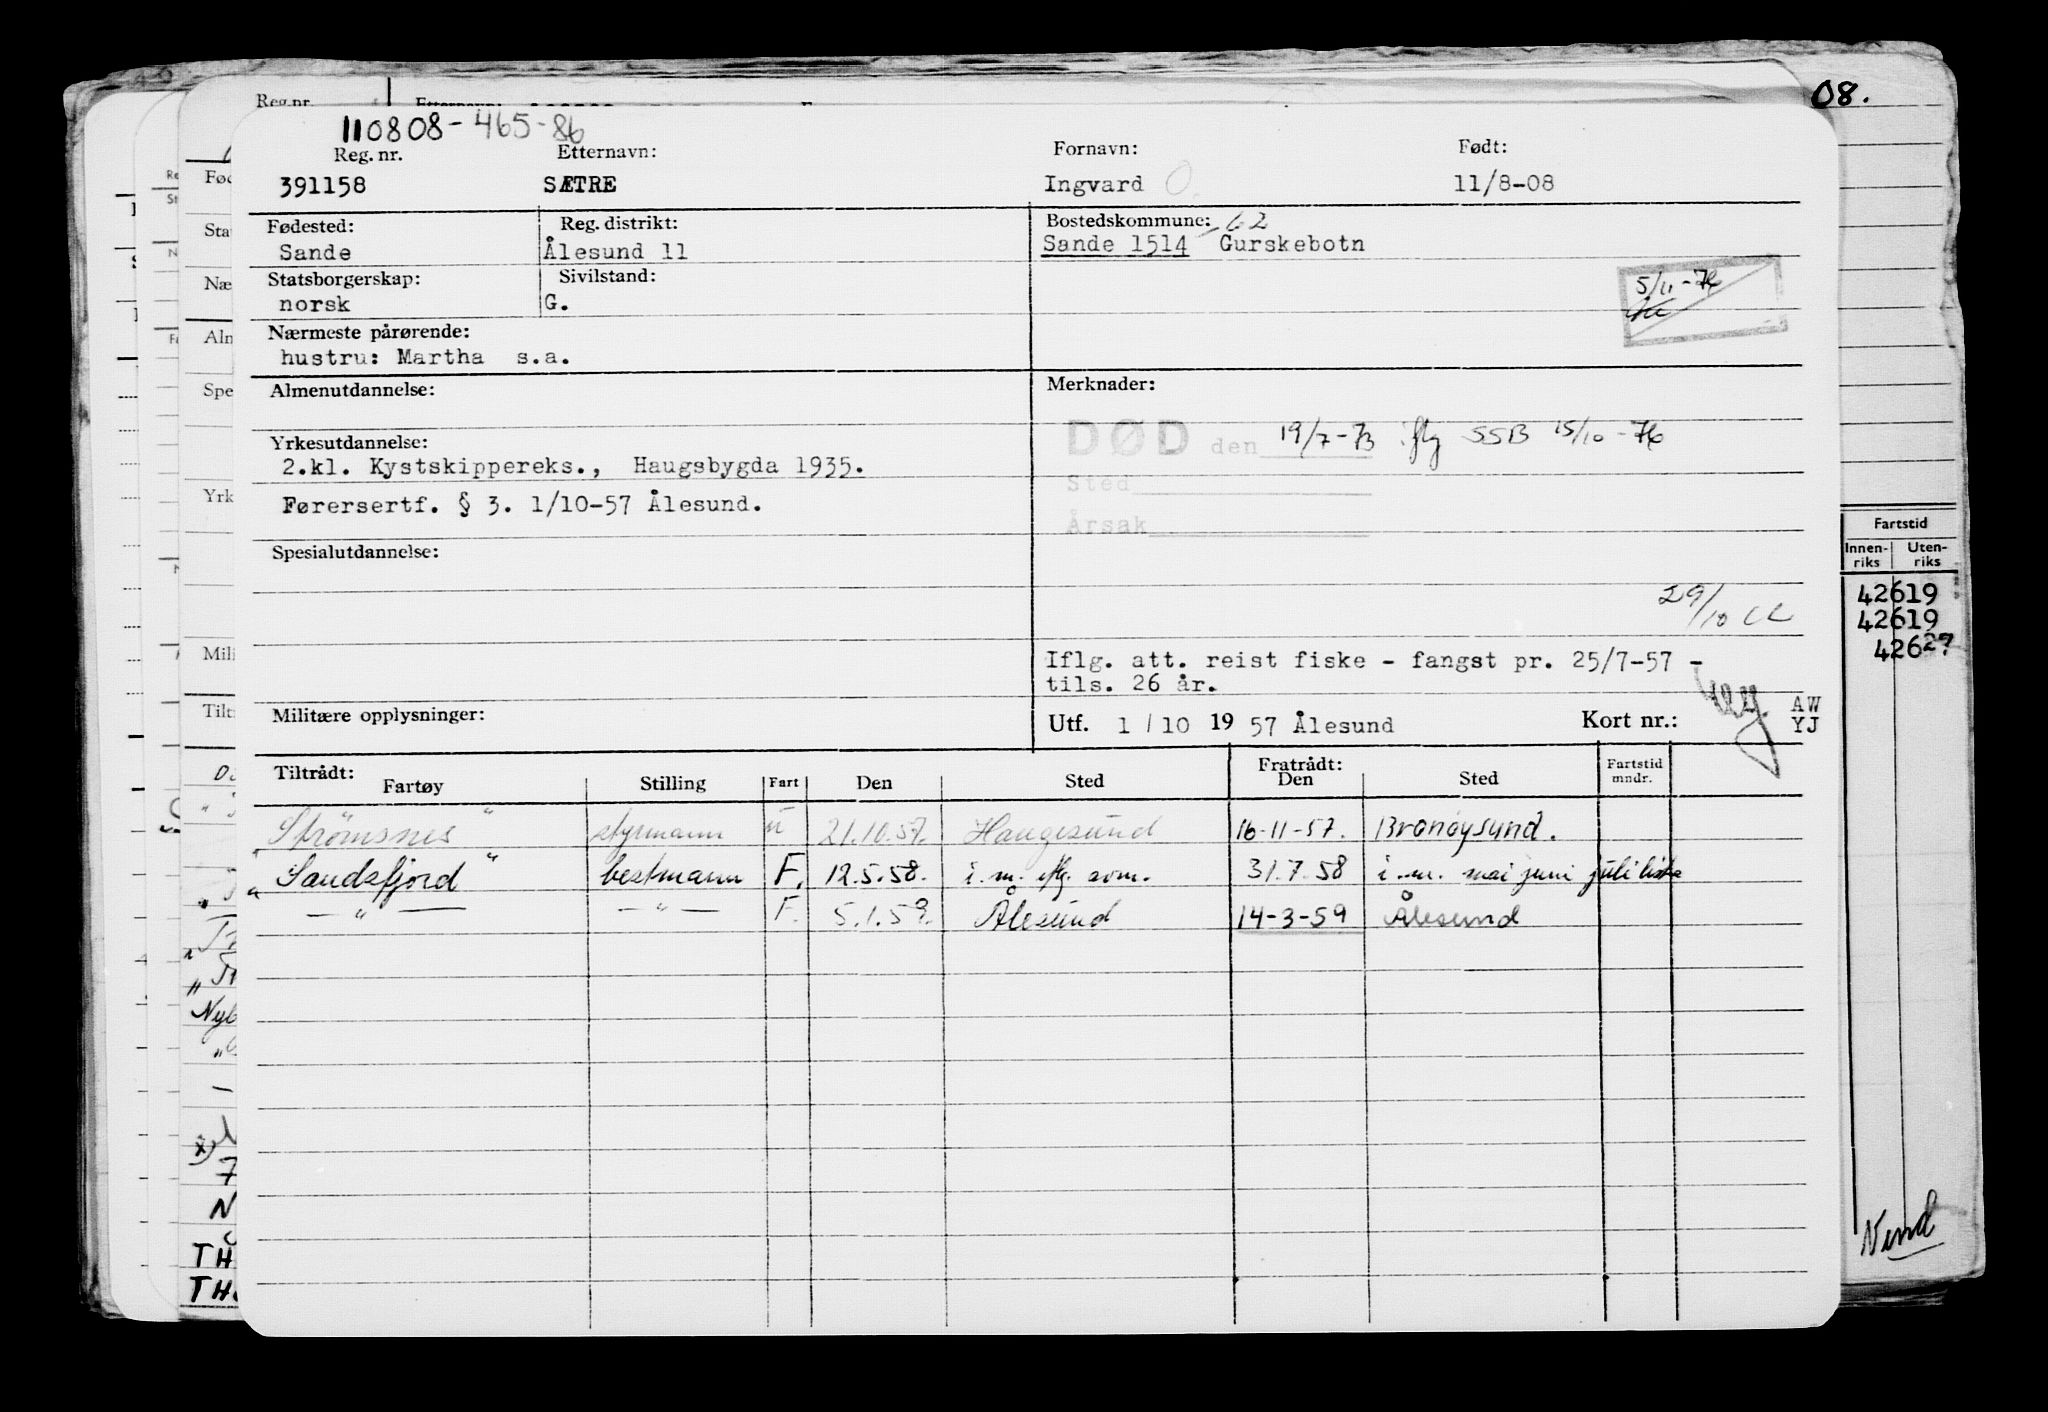 08.
Reg.nr. Etternavn:
110808-465-86
Reg. nr. Etternavn: Fornavn: Født:
391158 SÆTRE Ingvard O. 11/8-08
Fødested: Reg. distrikt: Bostedskommune: -62
Sande Ålesund 11 Sande 1514 Gurskebotn
Statsborgerskap: Sivilstand:
norsk G.
5/11-76
Nærmeste pårørende:
hustru: Martha s.a.
Almenutdannelse: Merknader:
DØD den 19/7-73 iflg SSB 15/10-76
Yrkesutdannelse:
2.kl. Kystskippereks., Haugsbygda 1935.
Sted
Førersertf. § 3. 1/10-57 Ålesund.
Årsak
Spesialutdannelse:
29/10 LL
Iflg. att. reist fiske - fangst pr. 25/7-57 -
tils. 26 år.
Militære opplysninger: Utf. 1/10 1957 Ålesund Kort nr.: AW
YJ
Tiltrådt: Fratrådt:
Fartøy Stilling Fart Den Sted Den Sted Fartstid mndr.
"Strömsnes" styrmann u 21.10.57. Haugesund 16-11-57. Brønøysund.
"Sandsfjord" bestmann F. 12.5.58. i.m. iflg. avm. 31.7.58 i.m. mai juni juli liste
— " — — " — F. 5.1.59. Ålesund 14-3-59 Ålesund
Fartstid
Innen-riks Uten-riks
42619
42619
42627
Vend
Fød
Stat
Næ
Alm
Spe
Yrk
Mili
Tilt
Nyb
TH
TH